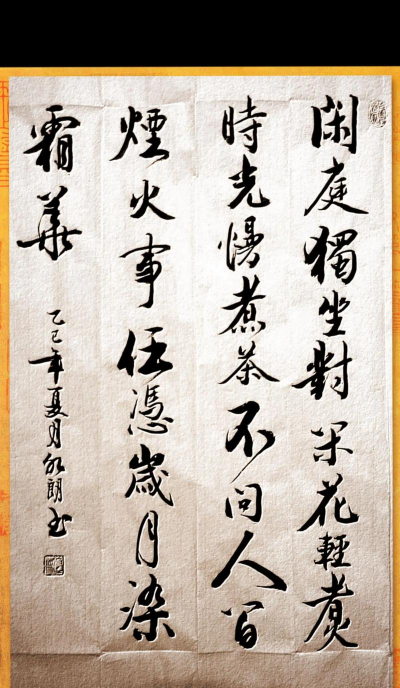 閑庭獨坐對闲花輕煮
時光慢煮茶不问人间
煙火事任憑歲月染
霜華
乙巳年夏月永朗书